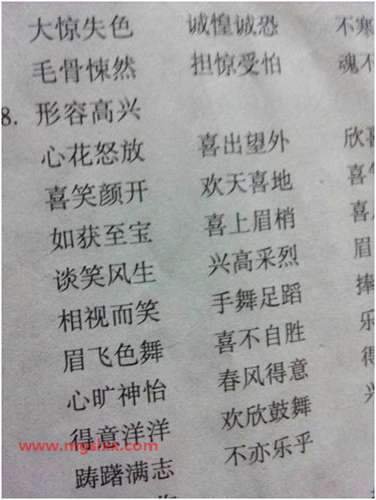 大惊失色 诚惶诚恐 不寒
毛骨悚然 担惊受怕 魂不
8. 形容高兴
心花怒放 喜出望外 欣
喜笑颜开 欢天喜地 喜
如获至宝 喜上眉梢 喜
谈笑风生 兴高采烈 眉
相视而笑 手舞足蹈 捧
眉飞色舞 喜不自胜 乐
心旷神怡 春风得意
得意洋洋 欢欣鼓舞
踌躇满志 不亦乐乎